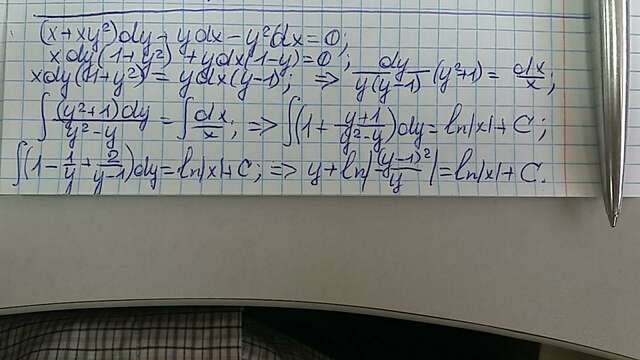 (x+xy²)dy+ydx-y²dx=0;
xdy(1+y²)+ydx(1-y)=0;
xdy(1+y²)=ydx(y-1); ⇒ dy/y(y-1) (y²+1)= dx/x;
∫(y²+1)dy/y²-y=∫dx/x; ⇒ ∫(1+ y+1/y²-y)dy=ln|x|+C;
∫(1-1/y+2/y-1)dy=ln|x|+C; ⇒ y+ln|(y-1)²/y|=ln|x|+C.